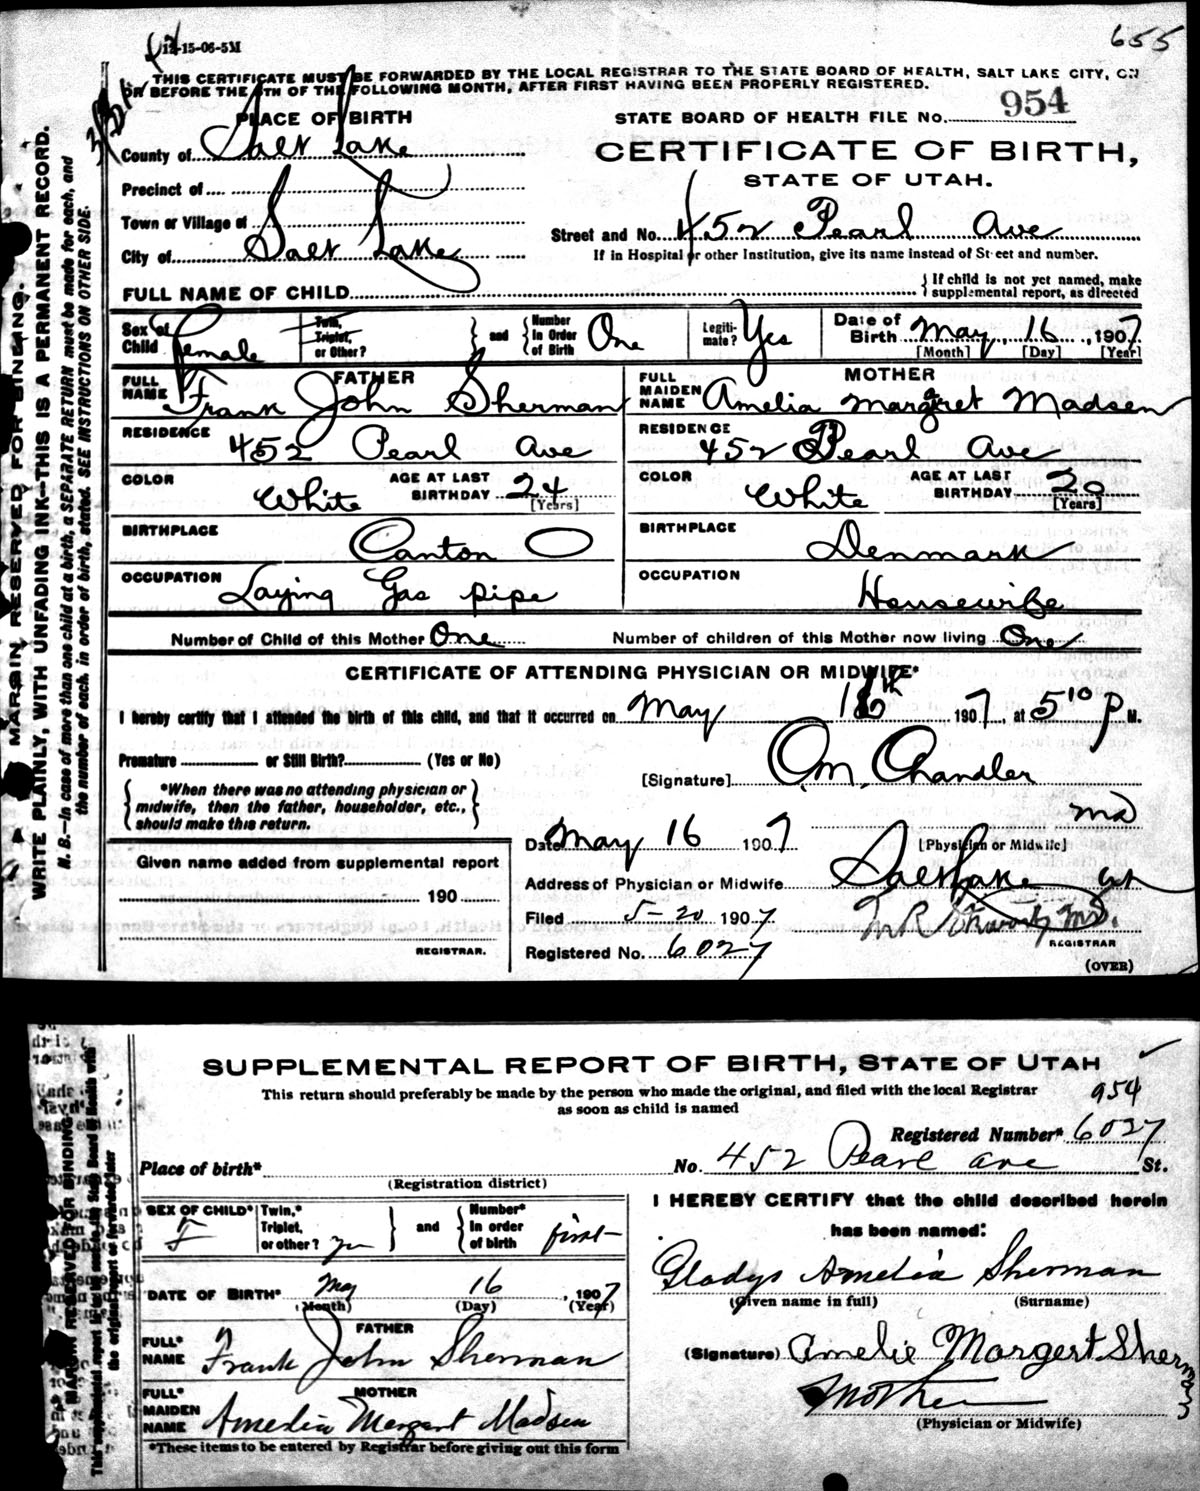 655
12-15-06-5M
THIS CERTIFICATE MUST BE FORWARDED BY THE LOCAL REGISTRAR TO THE STATE BOARD OF HEALTH, SALT LAKE CITY, ON
OR BEFORE THE 5TH OF THE FOLLOWING MONTH, AFTER FIRST HAVING BEEN PROPERLY REGISTERED.
MARGIN RESERVED FOR BINDING.
WRITE PLAINLY, WITH UNFADING INK—THIS IS A PERMANENT RECORD.
N. B.—In case of more than one child at a birth, a SEPARATE RETURN must be made for each, and
the number of each, in order of birth, stated. SEE INSTRUCTIONS ON OTHER SIDE.
PLACE OF BIRTH
County of Salt Lake
Precinct of
Town or Village of
City of Salt Lake
STATE BOARD OF HEALTH FILE NO. 954
CERTIFICATE OF BIRTH,
STATE OF UTAH.
Street and No. 452 Pearl Ave
If in Hospital or other Institution, give its name instead of Street and number.
FULL NAME OF CHILD
If child is not yet named, make
supplemental report, as directed
Sex of Child Female
Twin, Triplet, or Other?
and
Number in Order of Birth One
Legitimate? Yes
Date of Birth May 16, 1907
[Month] [Day] [Year]
FATHER
FULL NAME Frank John Sherman
RESIDENCE 452 Pearl Ave
COLOR White
AGE AT LAST BIRTHDAY 24 [Years]
BIRTHPLACE Canton O
OCCUPATION Laying Gas pipe
MOTHER
FULL MAIDEN NAME Amelia Margaret Madsen
RESIDENCE 452 Pearl Ave
COLOR White
AGE AT LAST BIRTHDAY 20 [Years]
BIRTHPLACE Denmark
OCCUPATION Housewife
Number of Child of this Mother One
Number of children of this Mother now living One
CERTIFICATE OF ATTENDING PHYSICIAN OR MIDWIFE*
I hereby certify that I attended the birth of this child, and that it occurred on May 16th 1907, at 5 10 P M.
Premature or Still Birth? (Yes or No)
*When there was no attending physician or
midwife, then the father, householder, etc.,
should make this return.
[Signature] O.M. Chandler
MD
[Physician or Midwife]
Date May 16 1907
Address of Physician or Midwife Salt Lake
Filed 5-20 1907
REGISTRAR
Registered No. 6027
(OVER)
Given name added from supplemental report
190
REGISTRAR.
SUPPLEMENTAL REPORT OF BIRTH, STATE OF UTAH
This return should preferably be made by the person who made the original, and filed with the local Registrar
as soon as child is named
954
Registered Number* 6027
Place of birth*
(Registration district)
No. 452 Pearl ave St.
SEX OF CHILD* F
Twin,* Triplet, or other?
and
Number* in order of birth first
DATE OF BIRTH* May 16, 1907
(Month) (Day) (Year)
FATHER
FULL* NAME Frank John Sherman
MOTHER
FULL* MAIDEN NAME Amelia Margart Madsen
*These items to be entered by Registrar before giving out this form
I HEREBY CERTIFY that the child described herein
has been named:
Gladys Amelia Sherman
(Given name in full) (Surname)
(Signature) Amelie Margert Sherman
Mother
(Physician or Midwife)